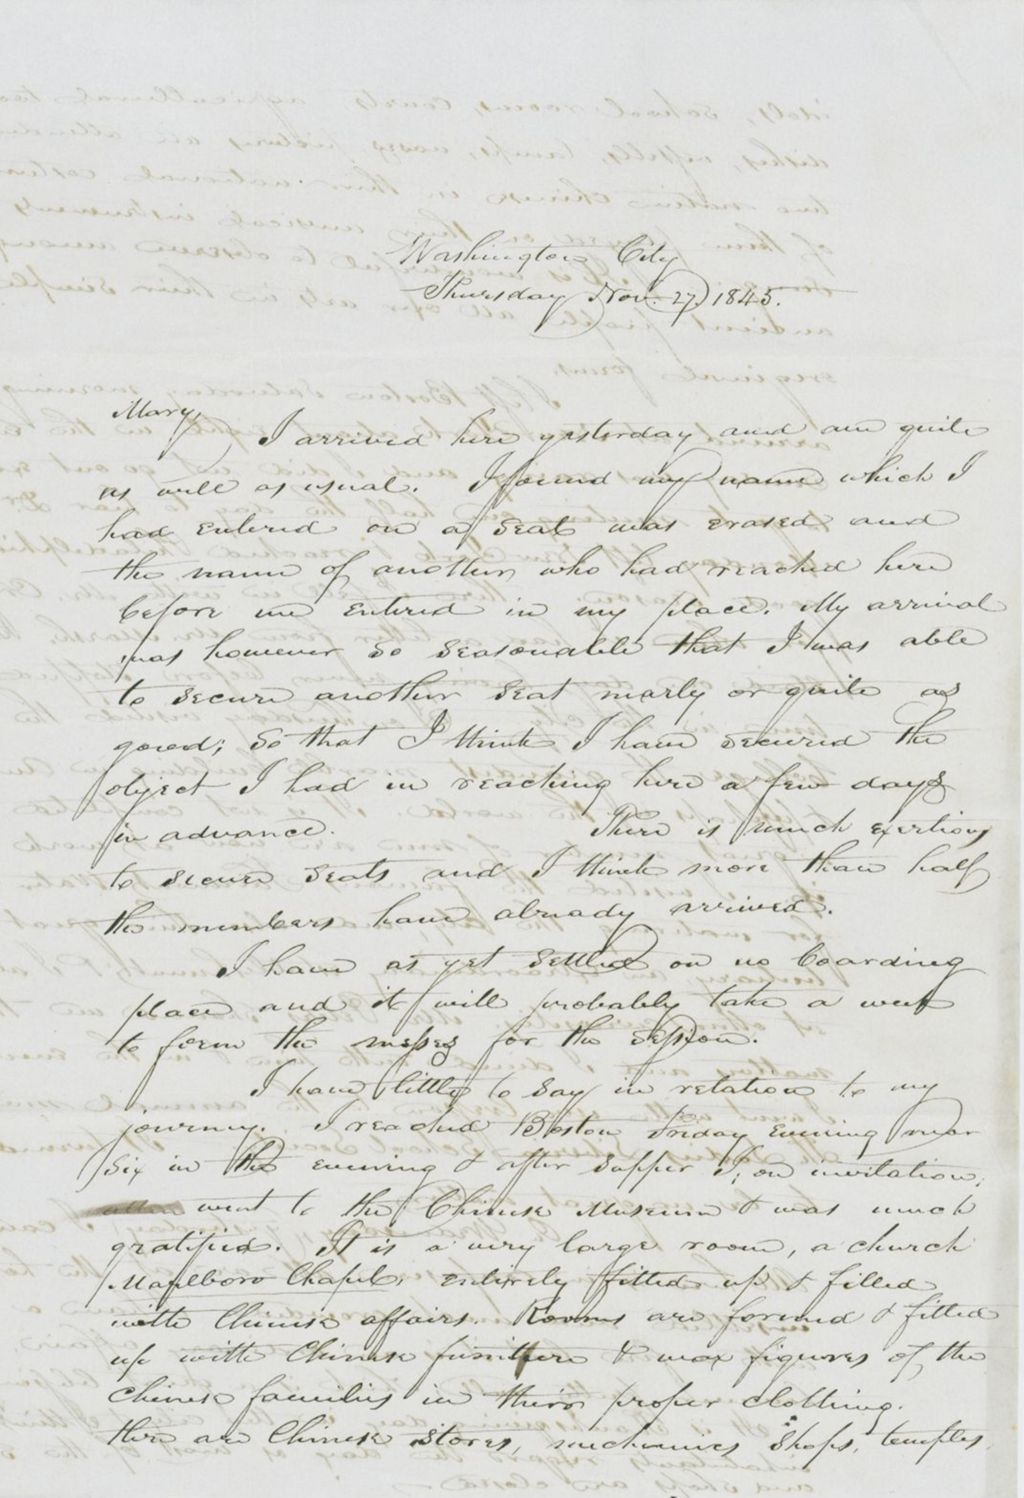 Washington City
Thursday Nov. 27, 1845.
Mary,
I arrived here yesterday and am quite
as well as usual. I found my name which I
had entered on a seat was erased and
the name of another who had reached here
before me entered in my place. My arrival
was however so seasonable that I was able
to secure another seat nearly or quite as
good; so that I think I have secured the
object I had in reaching here a few days
in advance. There is much exertion
to secure seats and I think more than half
the members have already arrived.
I have as yet settled on no boarding
place and it will probably take a week
to form the messes for the session.
I have little to say in relation to my
journey. I reached Boston Friday evening near
six in the evening & after supper I, on invitation,
went to the Chinese Museum & was much
gratified. It is a very large room, a church
Marlboro Chapel, entirely fitted up & filled
with Chinese affairs. Rooms are formed & fitted
up with Chinese furniture & wax figures of the
Chinese families in their proper clothing.
there are Chinese stores, mechanics shops, temples,